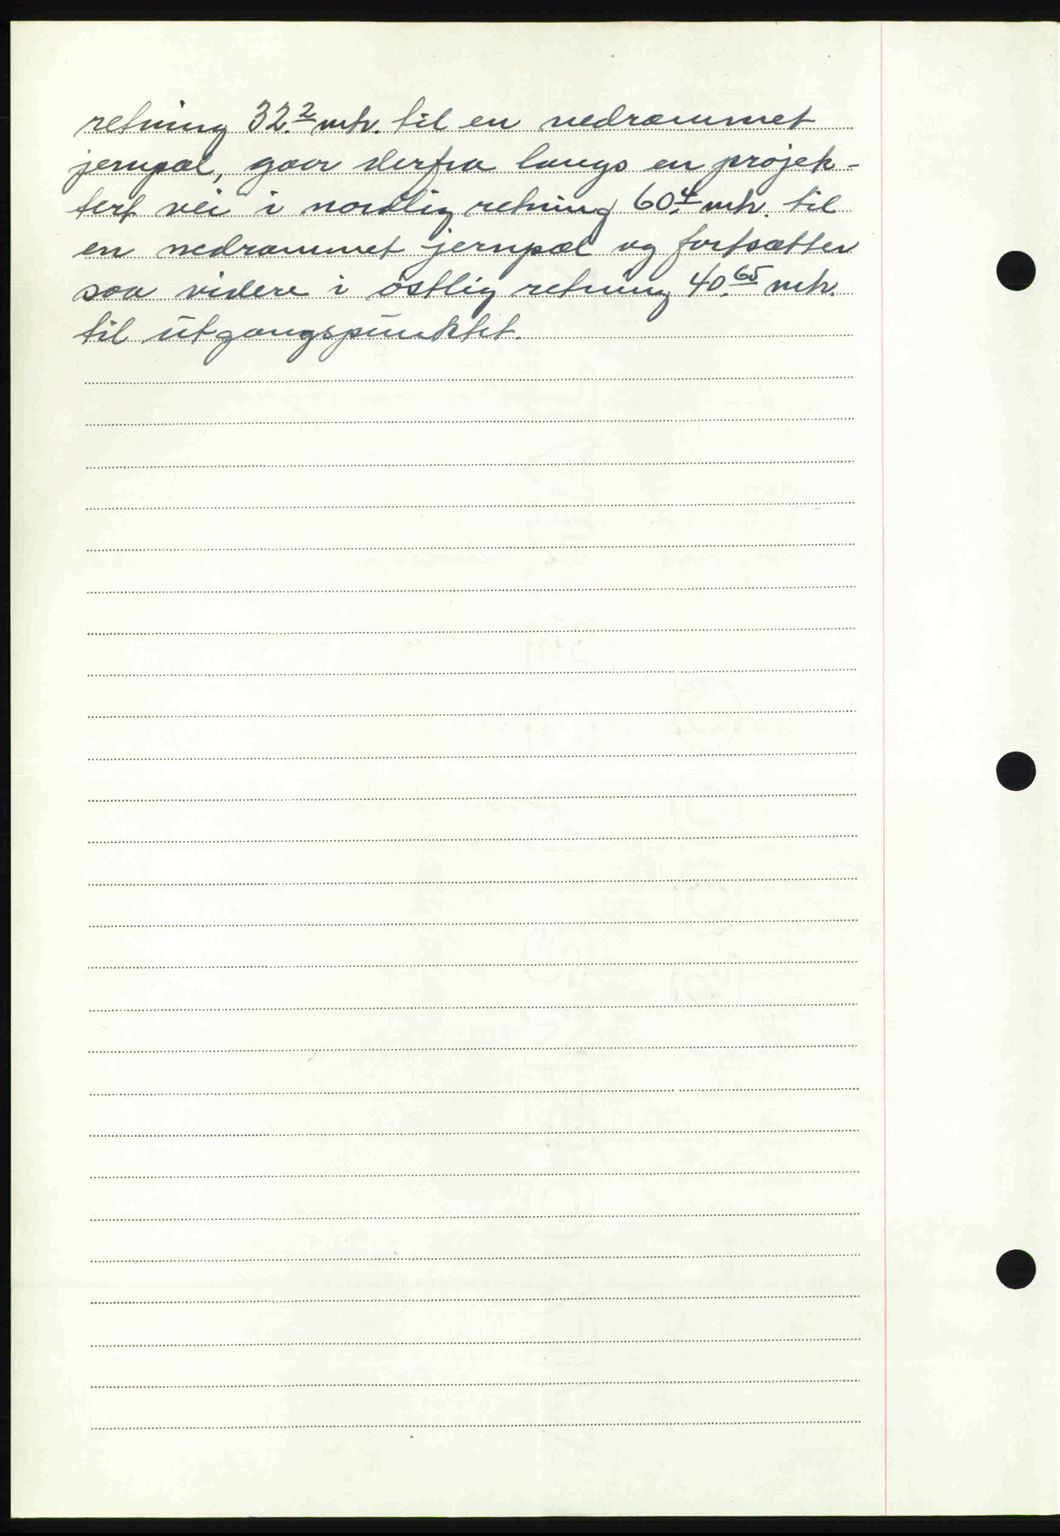 retning 32.2 mtr. til en nedrammet
jernpæl, gaar derfra langs en projek-
tert vei i nordlig retning 60.4 mtr. til
en nedrammet jernpæl og fortsætter
saa videre i østlig retning 40.65 mtr.
til utgangspunktet.